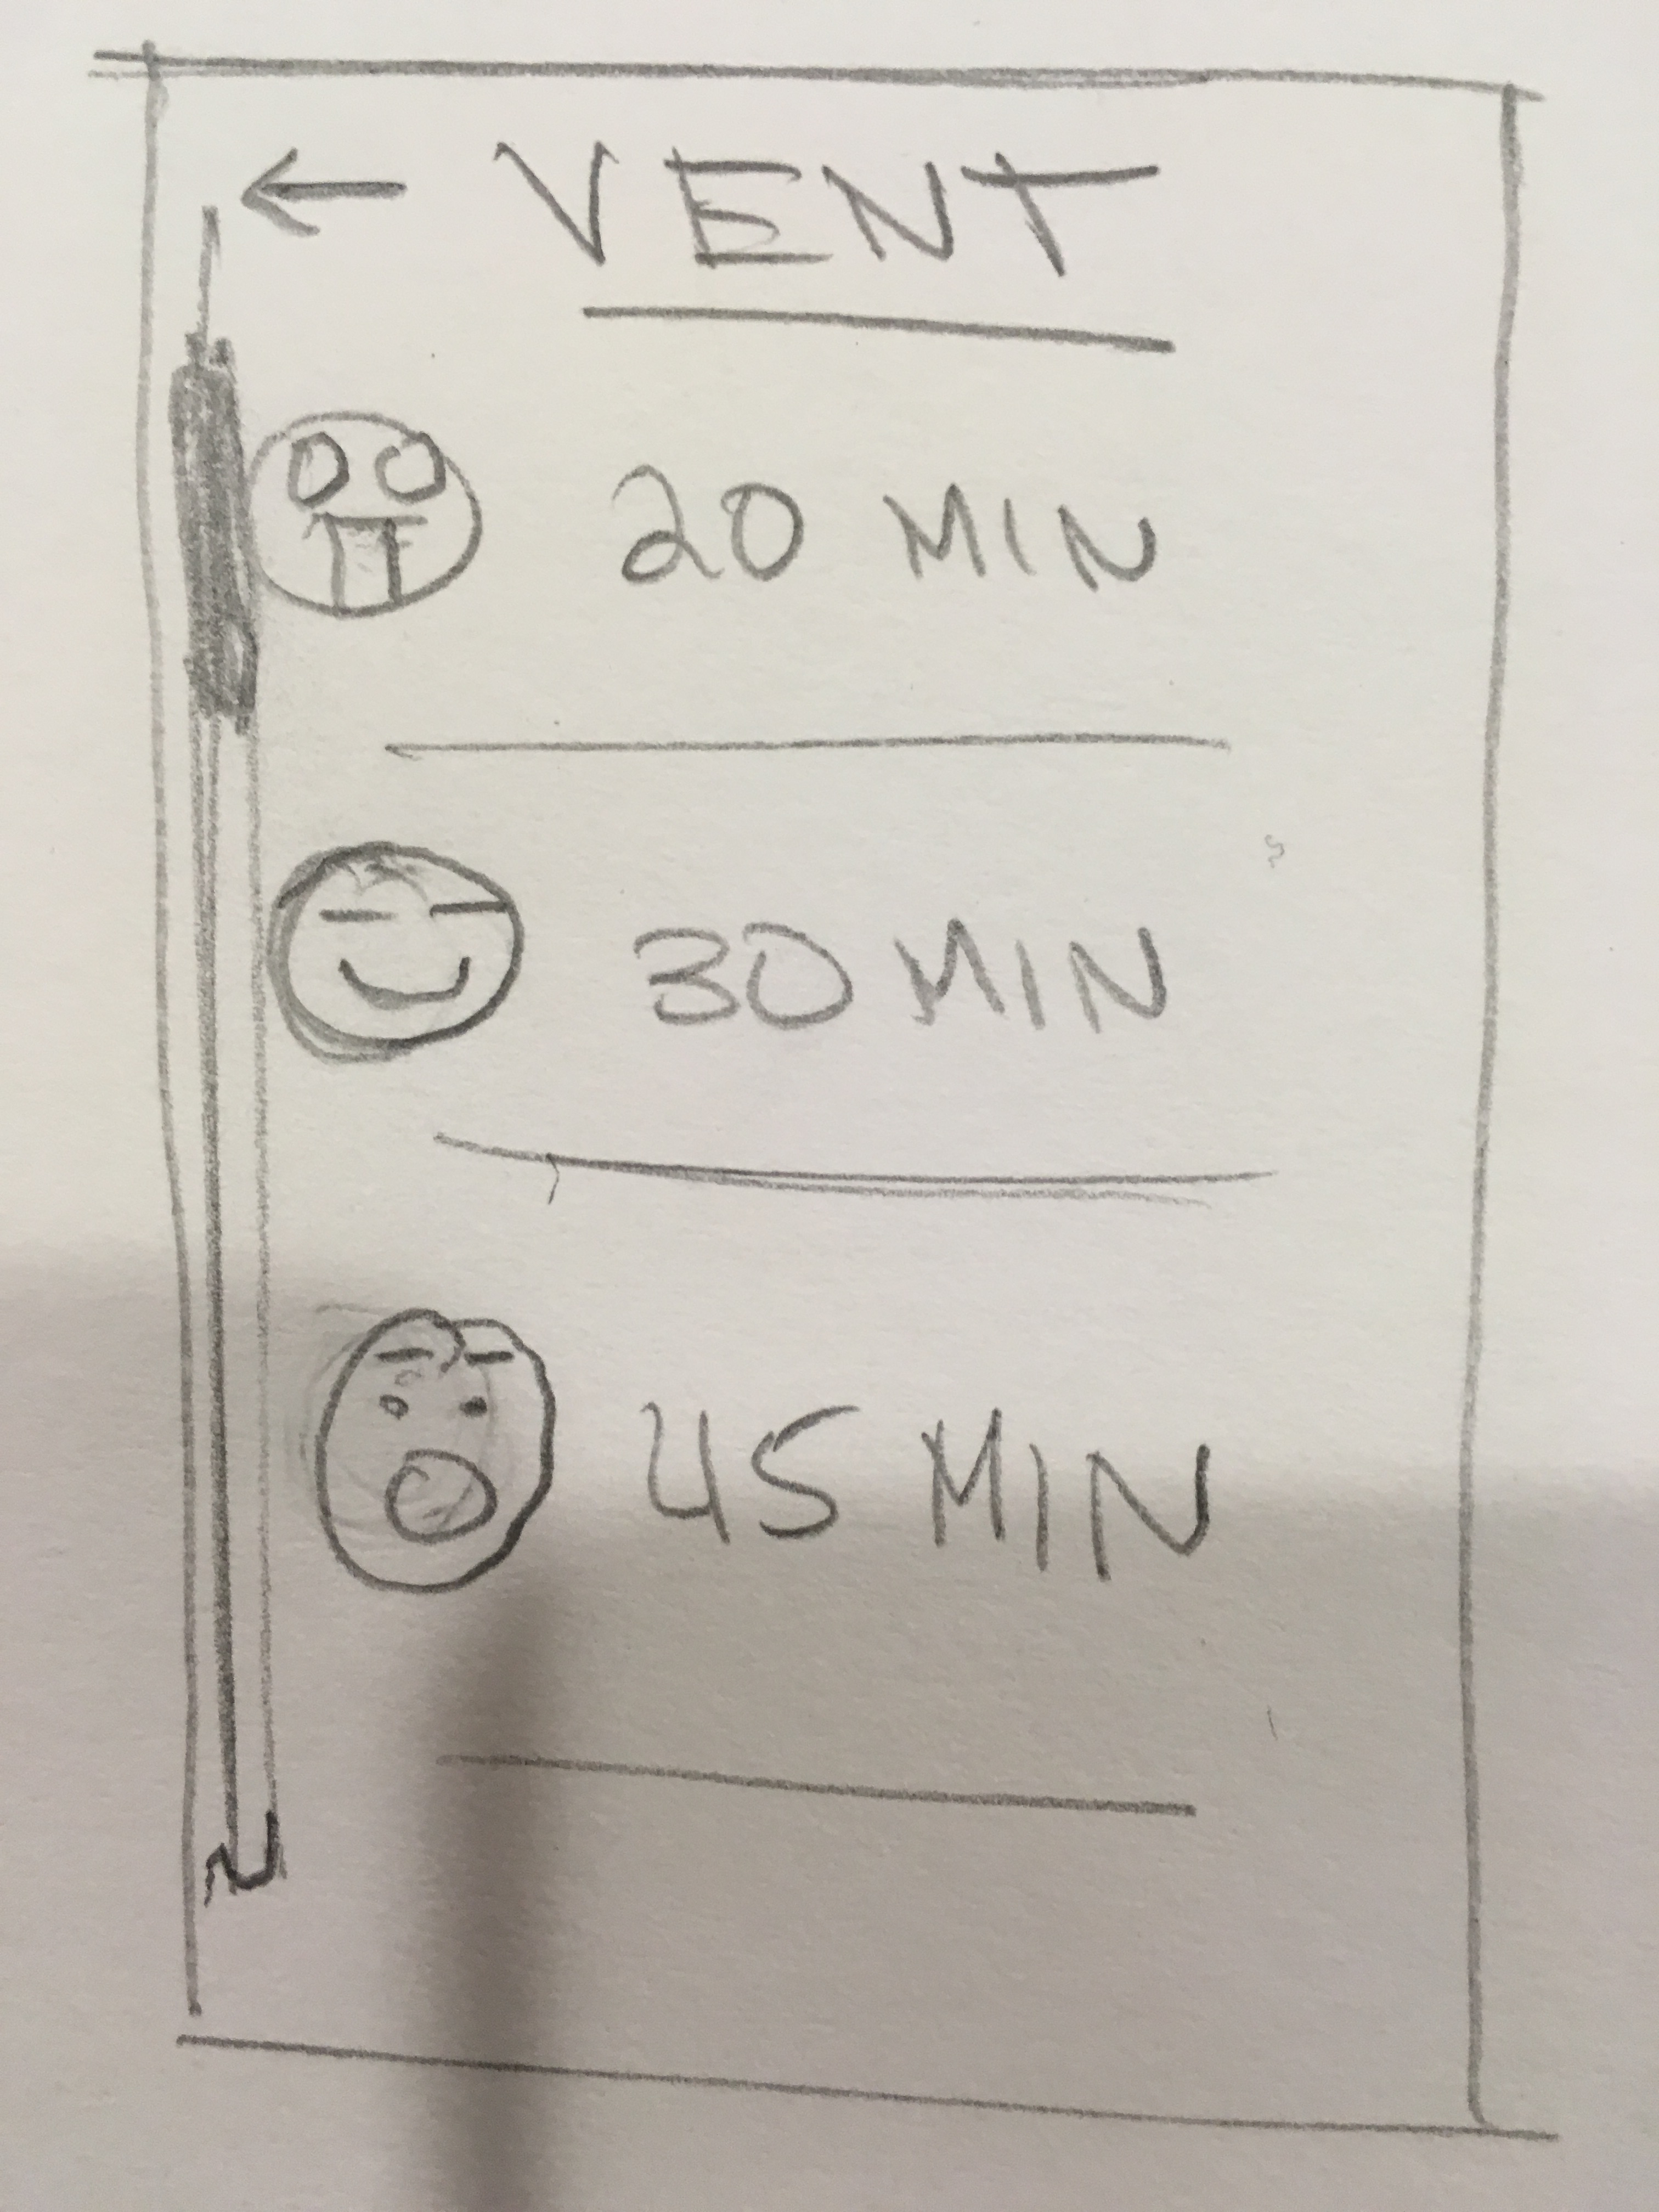 ← VENT
20 MIN
30 MIN
45 MIN